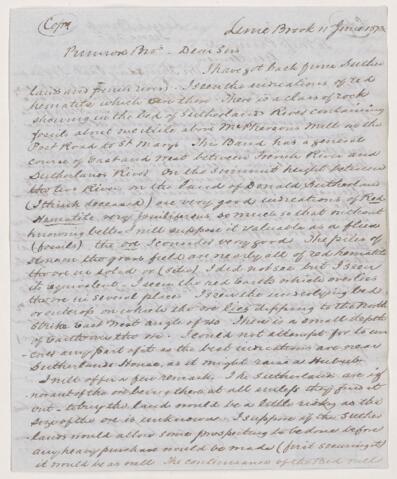 (Copy)
Lime Brook 11 June 187
Primrose Bros. Dear Sirs
I have got back from Suther
lands and french river. I seen the indications of red
hematite which are there. There is a class of rock
showing in the bed of Sutherlands River containing
fossils about one mile above McPhersons Mill on the
Post Road to St Marys. This Band has a general
course of East and West between French River and
Sutherlands River. On the summit height between
the two River on the land of Donald Sutherland
(I think deceased) are very good indications of Red
Hematite very fossiliferous so much so that without
knowing better will suppose it valuable as a flux
(fossils) the ore I consider very good. The piles of
stones in the grass field are nearly all of red hematite
the ore in solid or (situ) I did not see but I seen
it equivalent. I seen the red Earth which overlies
the ore in several places. I seen the underlying bed
or outcrop on which the ore lies dipping to the North
Strike East West angle of 40. There is a small depth
of Earth over the ore. I could not attempt for to un
cover any part of it as the best indications are near
Sutherlands House, as it might raise a Hubub.
I will offer a few remarks. The Sutherlands are if
not out of the ore being there at all unless they find it
out - to buy the land would be a little risky as the
size of the ore is unknown. I suppose if the Suther
lands would allow some prospecting to be done before
any heavy purchase would be made (first securing it)
it would be as well. The continuance of the Bed will